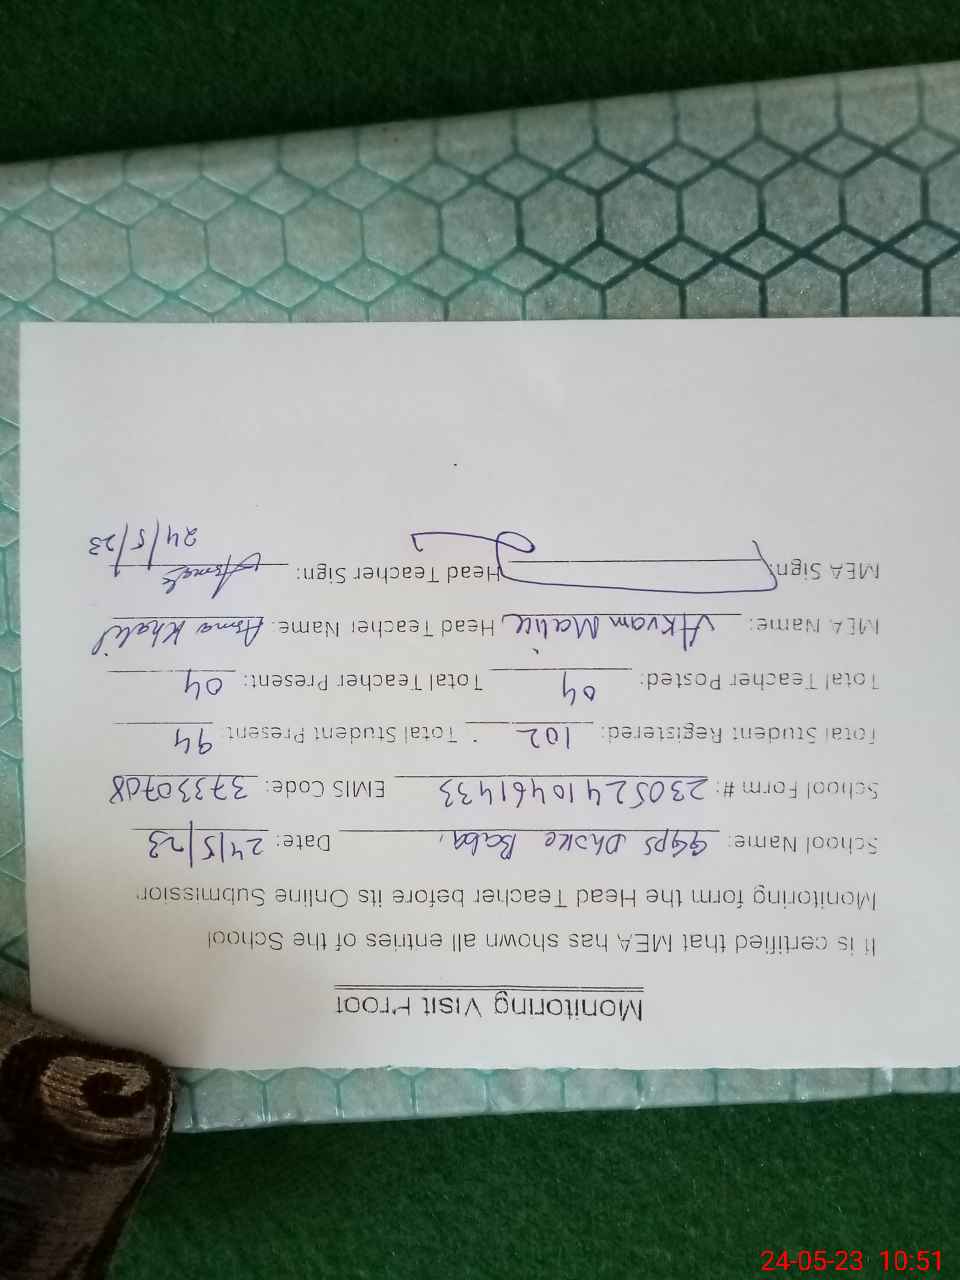 Monitoring Visit Proof
It is certified that MEA has shown all entries of the School
Monitoring form the Head Teacher before its Online Submission
School Name: GGPS Dhoke Baba, Date: 24/5/23
School Form #: 23052410461433 EMIS Code: 37330708
Total Student Registered: 102 Total Student Present: 94
Total Teacher Posted: 04 Total Teacher Present: 04
MEA Name: Akram Malik, Head Teacher Name: Asma Khalil
MEA Sign: Head Teacher Sign: Asma
24/5/23
24-05-23 10:51